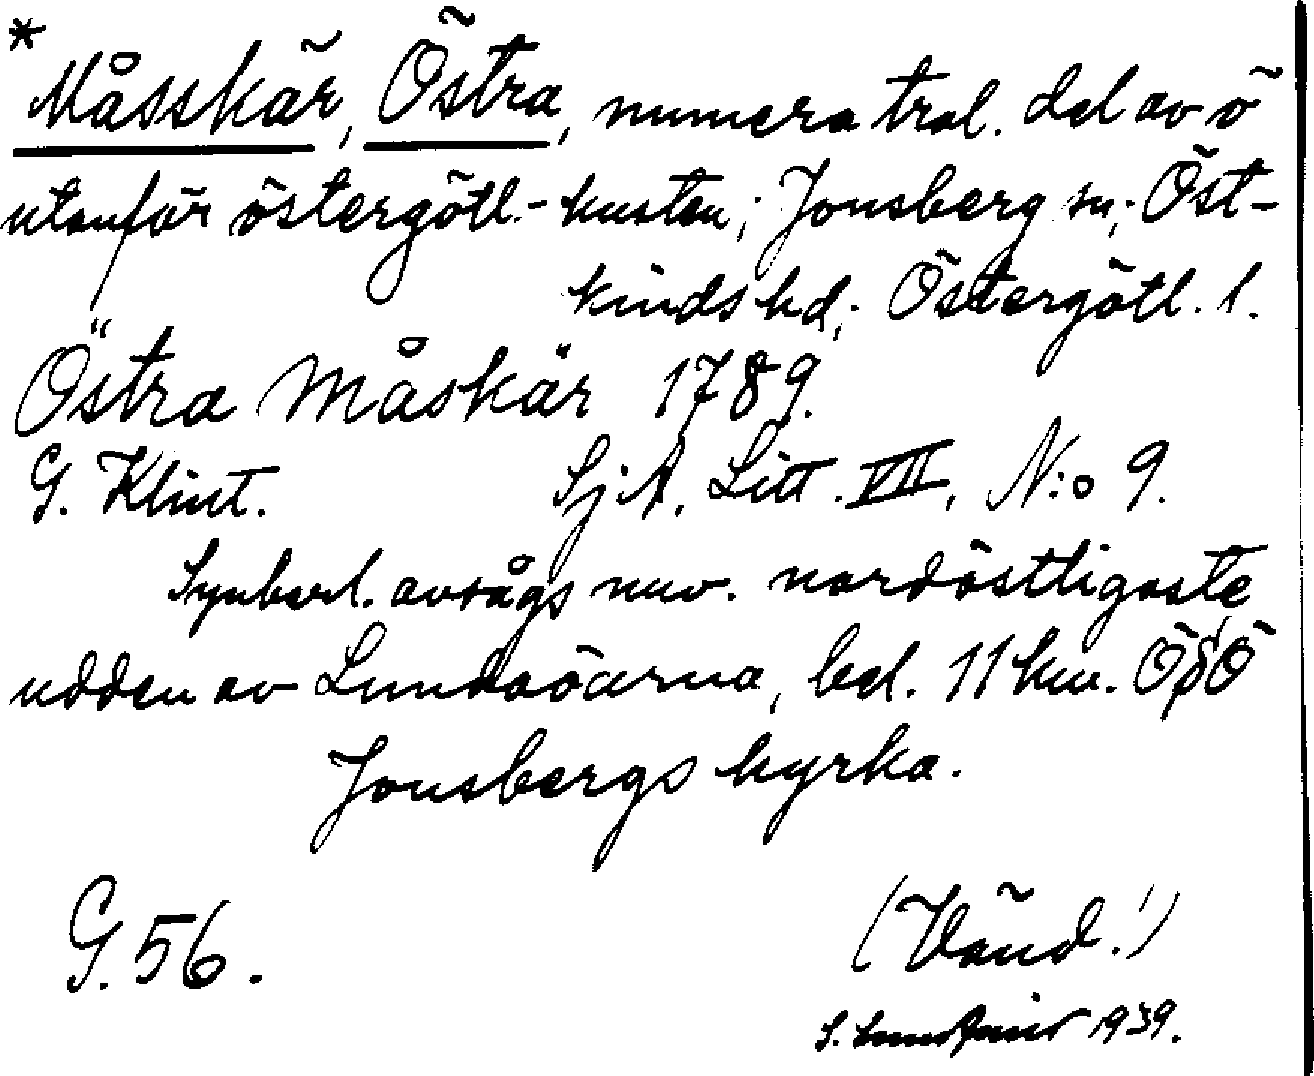 * Måsskär, Östra, numera trol. del av ö
utanför östergötl.- kusten; Jonsberg sn; Öst-
kinds hd; Östergötl. l.
Östra Måskär 1789.
G. Klint. SjA, Litt. VII, N:o 9.
Synbarl. avsågs nuv. nordöstligaste
udden av Lundaöarna, bel. 11 km. ÖSÖ
Jonsbergs kyrka.
G. 56. (Vänd!)
S. 1939.